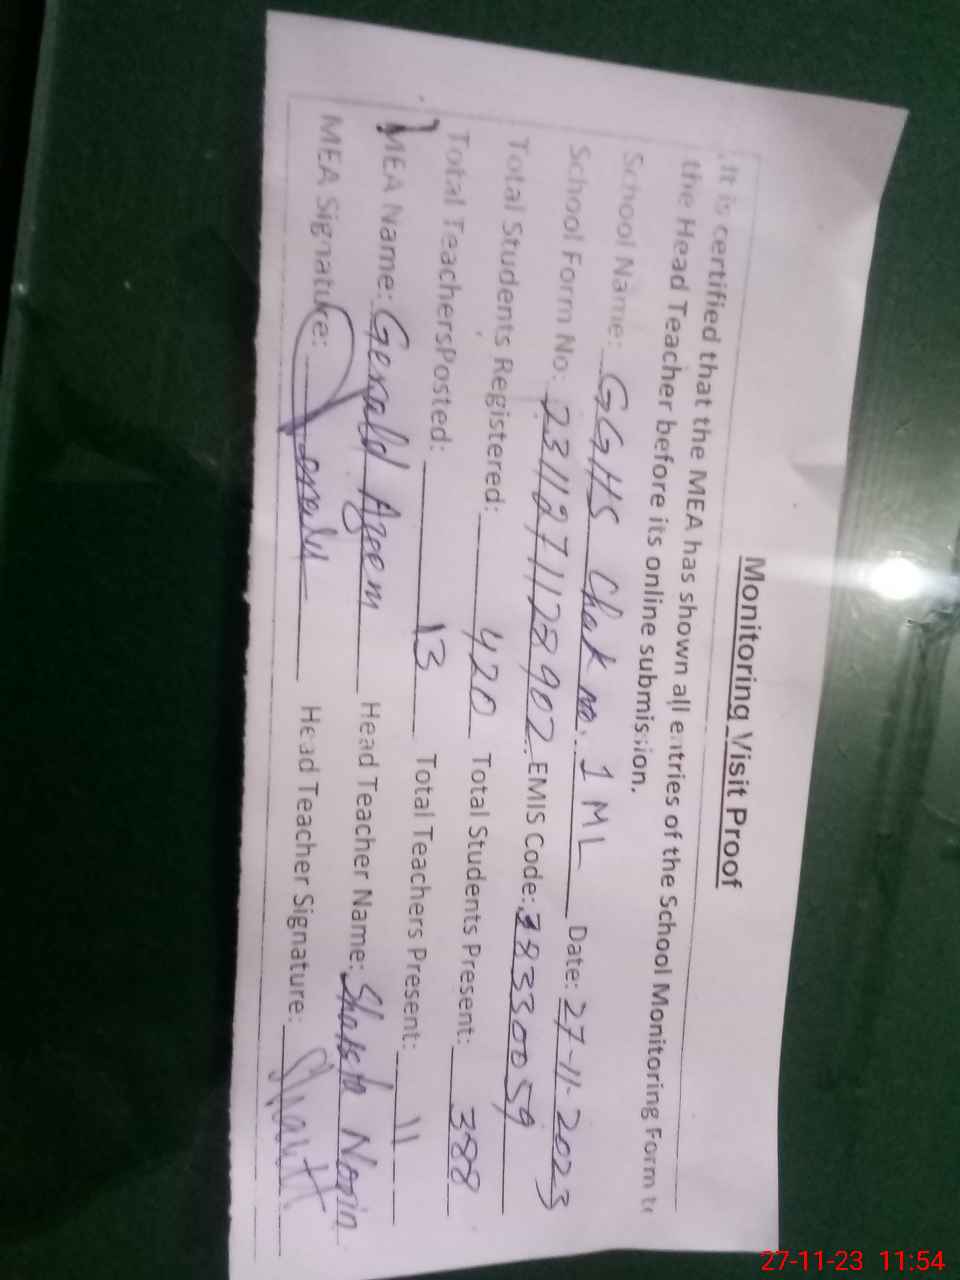 Monitoring Visit Proof
It is certified that the MEA has shown all entries of the School Monitoring Form to
the Head Teacher before its online submission.
School Name: GGHS Chak no. 1 ML Date: 27-11-2023
School Form No: 2311271128902 EMIS Code: 38330059
Total Students Registered: 420 Total Students Present: 388
Total TeachersPosted: 13 Total Teachers Present: 11
MEA Name: Gerald Azeem Head Teacher Name: Shaista Norin
MEA Signature: Gerald Head Teacher Signature:
27-11-23 11:54